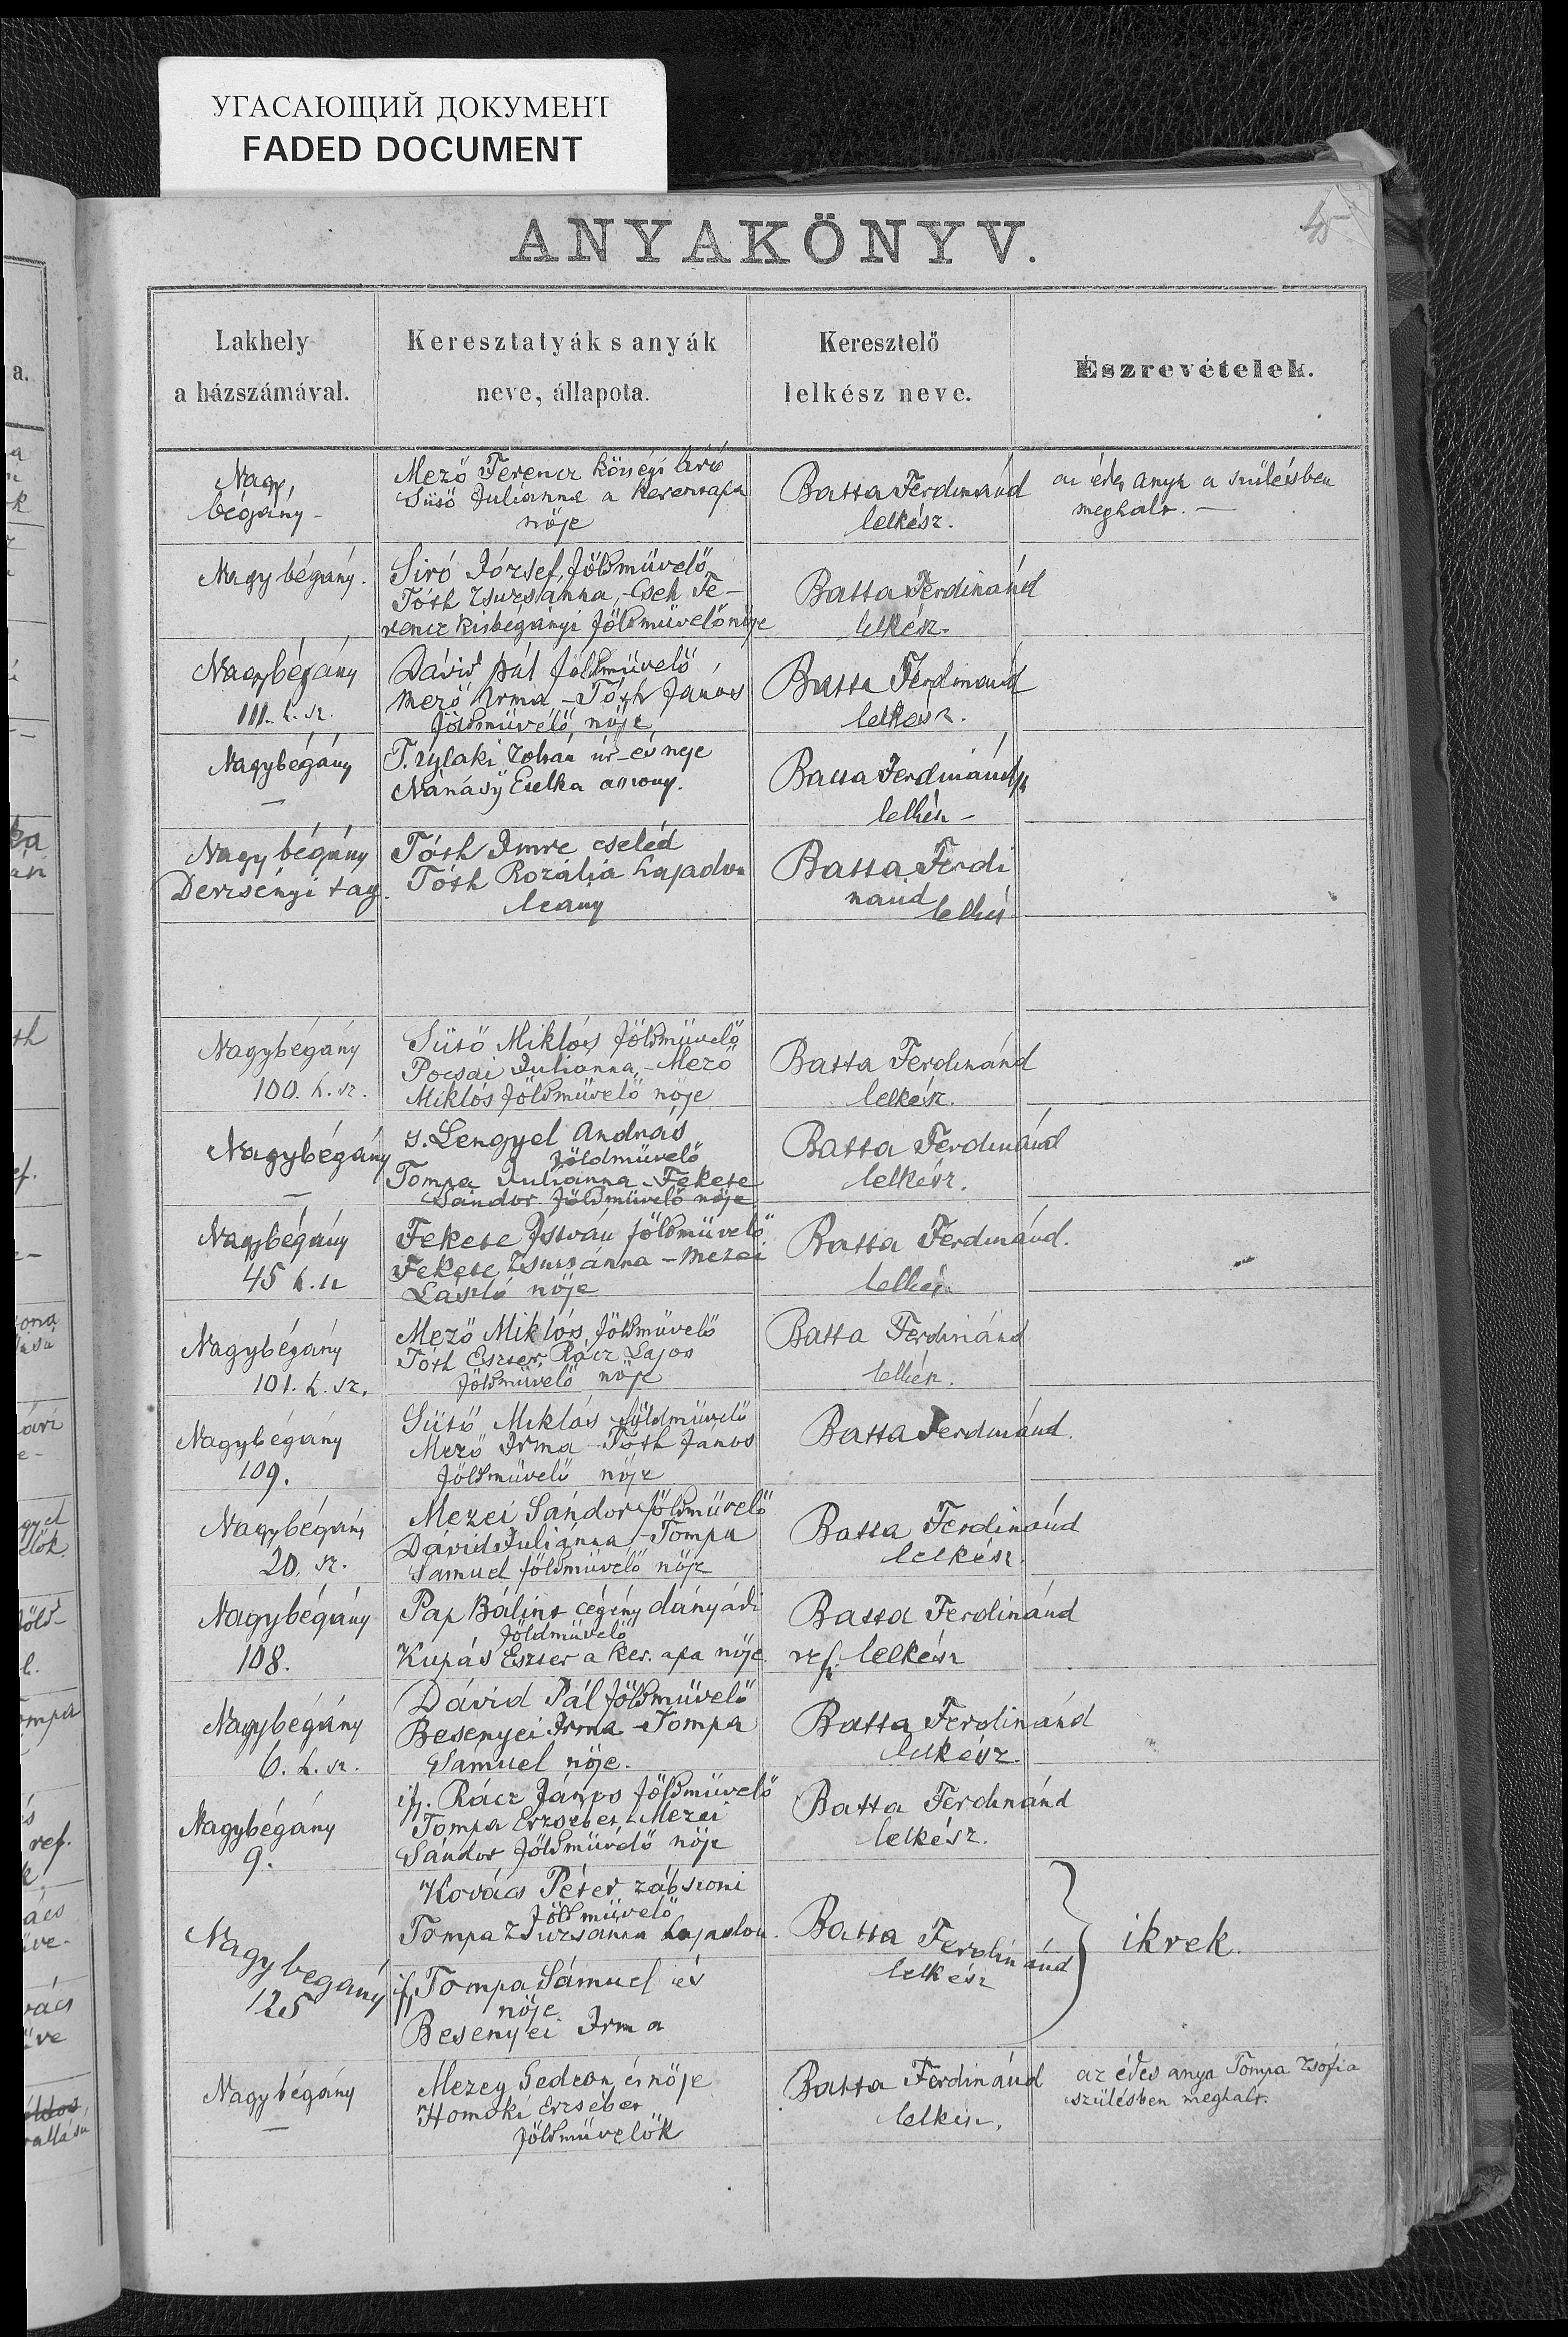 УГАСАЮЩИЙ ДОКУМЕНТ
FADED DOCUMENT
45
ANYAKÖNYV.
Lakhely
a házszámával.
Keresztatyák s anyák
neve, állapota.
Keresztelő
lelkész neve.
Észrevételek.
Nagy,
bégány -
Mező Ferencz községi biró
Sütő Juliánna a keresztapa
nöje
Batta Ferdinánd
lelkész.
az édes anya a szülésben
meghalt. —
Nagy bégány.
Siró József, földmüvelő
Tóth Zsuzsanna, - Cseh Fe-
rencz kisbégányi földmüvelő nöje
Batta Ferdinánd
lelkész.
Nagybégány
111. h. sz.
Dávid Pál földmüvelő
Mező Irma - Tóth János
földmüvelő nöje
Batta Ferdinand
lelkész.
Nagybégány
—
T. Ujlaki Zoltán úr - és neje
Nánásÿ Etelka asszony.
Batta Ferdinánd
lelkész -
Nagy bégány
Derzsényi tag.
Tóth Imre cseléd
Tóth Rozália hajadon
leány
Batta Ferdi
nánd
lelkész
Nagybégány
100. h. sz.
Sütő Miklós földmüvelő
Pocsai Julianna, - Mező
Miklós földmüvelő nöje
Batta Ferdinánd
lelkész.
Nagybégány
—
s. Lengyel András
földmüvelő
Tompa Juliánna - Fekete
Sándor földmüvelő nöje
Batta Ferdinánd
lelkész.
Nagybégány
45 h. sz
Fekete István földmüvelő
Fekete Zsuzsánna - Mezei
László nöje
Batta Ferdinánd.
lelkész
Nagybégány
101. h. sz.
Mező Miklós, földmüvelő
Tóth Eszter, Rácz Lajos
földmüvelő nöje
Batta Ferdinánd
lelkész.
Nagybégány
109.
Sütő Miklós földmüvelő
Mező Irma - Tóth János
földmüvelő nöje
Batta Ferdinánd.
Nagybégány
20. sz.
Mezei Sándor földmüvelő
Dávid Juliánna - Tompa
Samuel földmüvelő nöje
Batta Ferdinánd
lelkész.
Nagybégány
108.
Pap Bálint cégény dányádi
földmüvelő
Kupás Eszter a ker. apa nöje.
Batta Ferdinánd
ref. lelkész
Nagybégány
6. h. sz.
Dávid Pál földmüvelő
Besenyei Irma - Tompa
Sámuel nöje.
Batta Ferdinánd
lelkész.
Nagybégány
9.
ifj. Rácz János földmüvelő
Tompa Erzsébet - Mezei
Sándor földmüvelő nöje
Batta Ferdinánd
lelkész.
Nagy begány
125
Kovács Péter zábszoni
földmüvelő
Tompa Zsuzsánna hajadon.
ifj Tompa Sámuel és
nöje
Besenyei Irma
Batta Ferdinánd
lelkész
ikrek.
Nagybégány
—
Mezey Gedeon és nöje
Homoki Erzsébet
földmüvelők
Batta Ferdinánd
lelkész.
az édes anya Tompa Zsófia
szülésben meghalt.